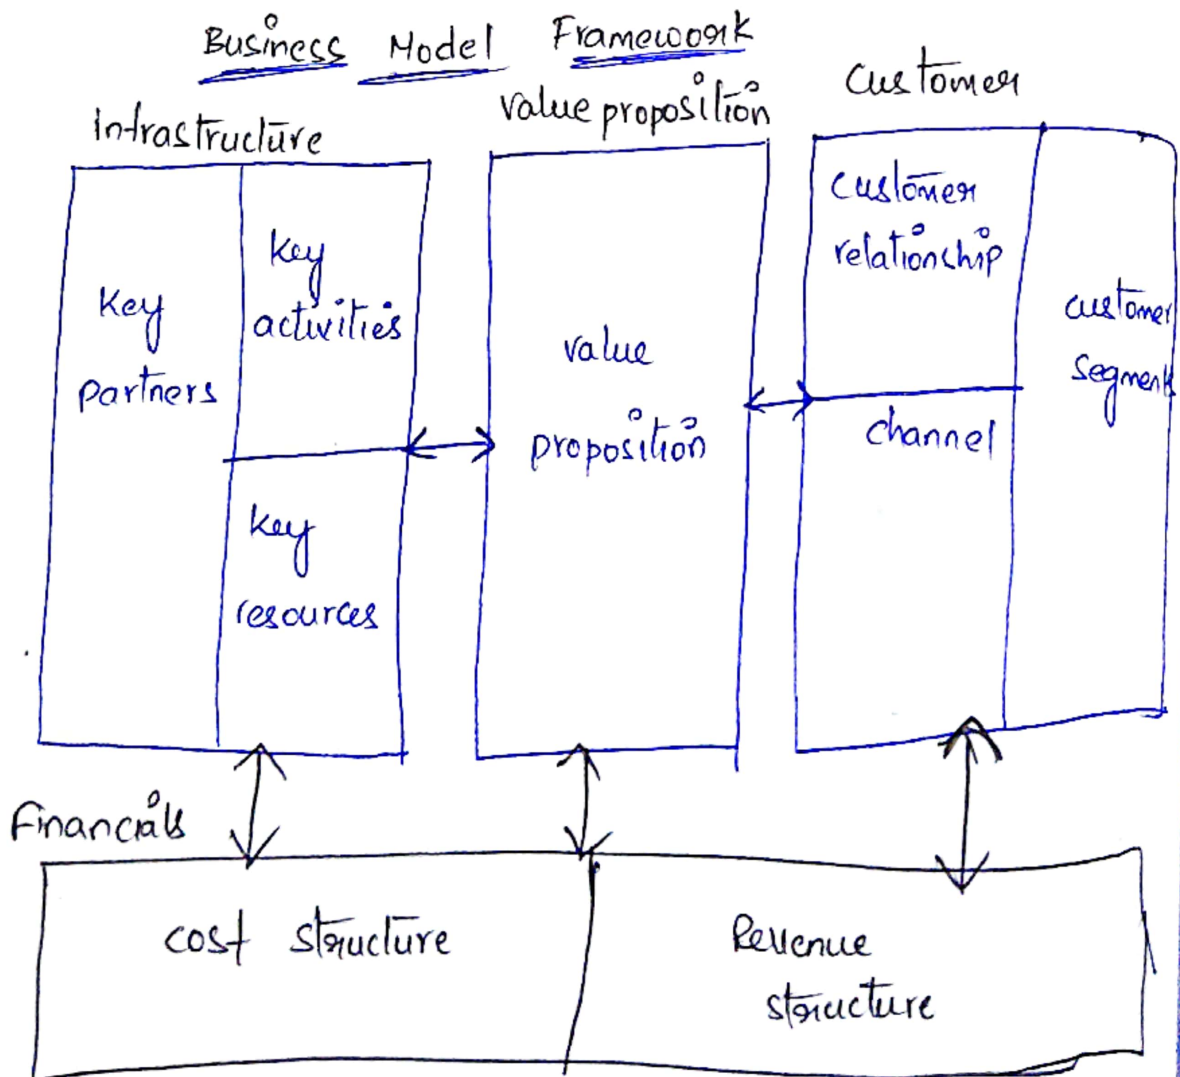 Business Model Framework
Infrastructure
value proposition
Customer
Key
partners
key
activities
key
resources
value
proposition
customer
relationship
channel
customer
segments
Financials
cost structure
Revenue
structure